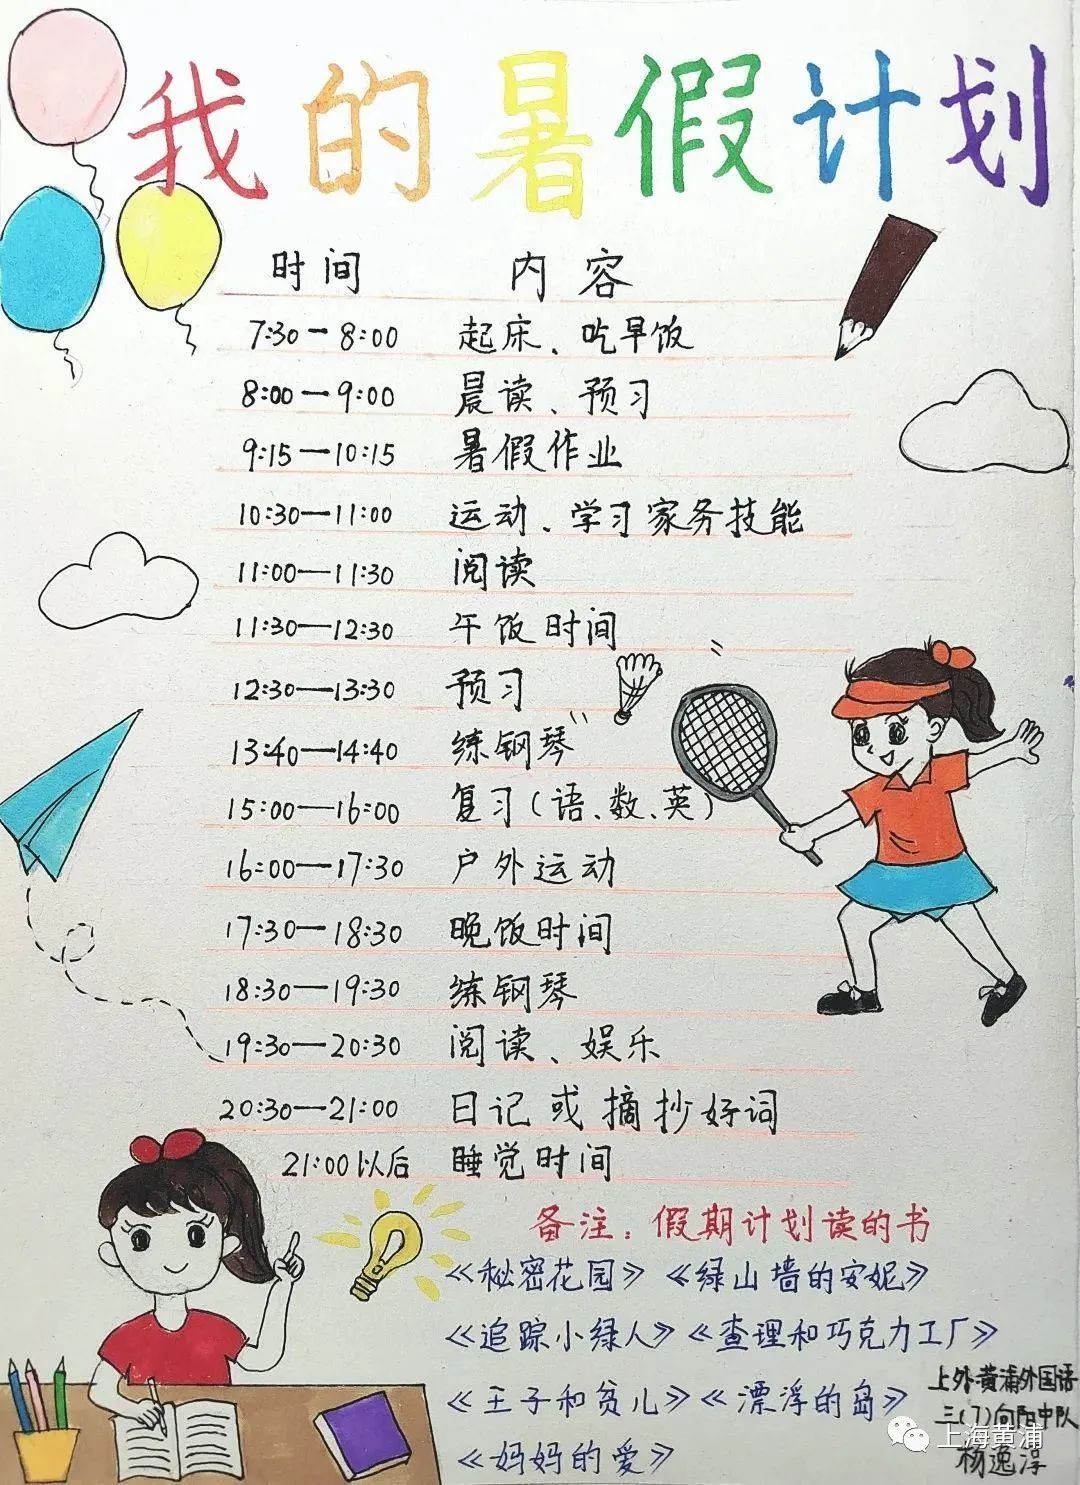 我的暑假计划
时间 内容
7:30-8:00 起床、吃早饭
8:00—9:00 晨读、预习
9:15—10:15 暑假作业
10:30—11:00 运动、学习家务技能
11:00—11:30 阅读
11:30—12:30 午饭时间
12:30—13:30 预习
13:40—14:40 练钢琴
15:00—16:00 复习(语、数、英)
16:00—17:30 户外运动
17:30—18:30 晚饭时间
18:30—19:30 练钢琴
19:30—20:30 阅读、娱乐
20:30—21:00 日记或摘抄好词
21:00以后 睡觉时间
备注:假期计划读的书
《秘密花园》《绿山墙的安妮》
《追踪小绿人》《查理和巧克力工厂》
《王子和贫儿》《漂浮的岛》
《妈妈的爱》
上外黄浦外国语
三(7)向阳中队
杨逸淳
上海黄浦